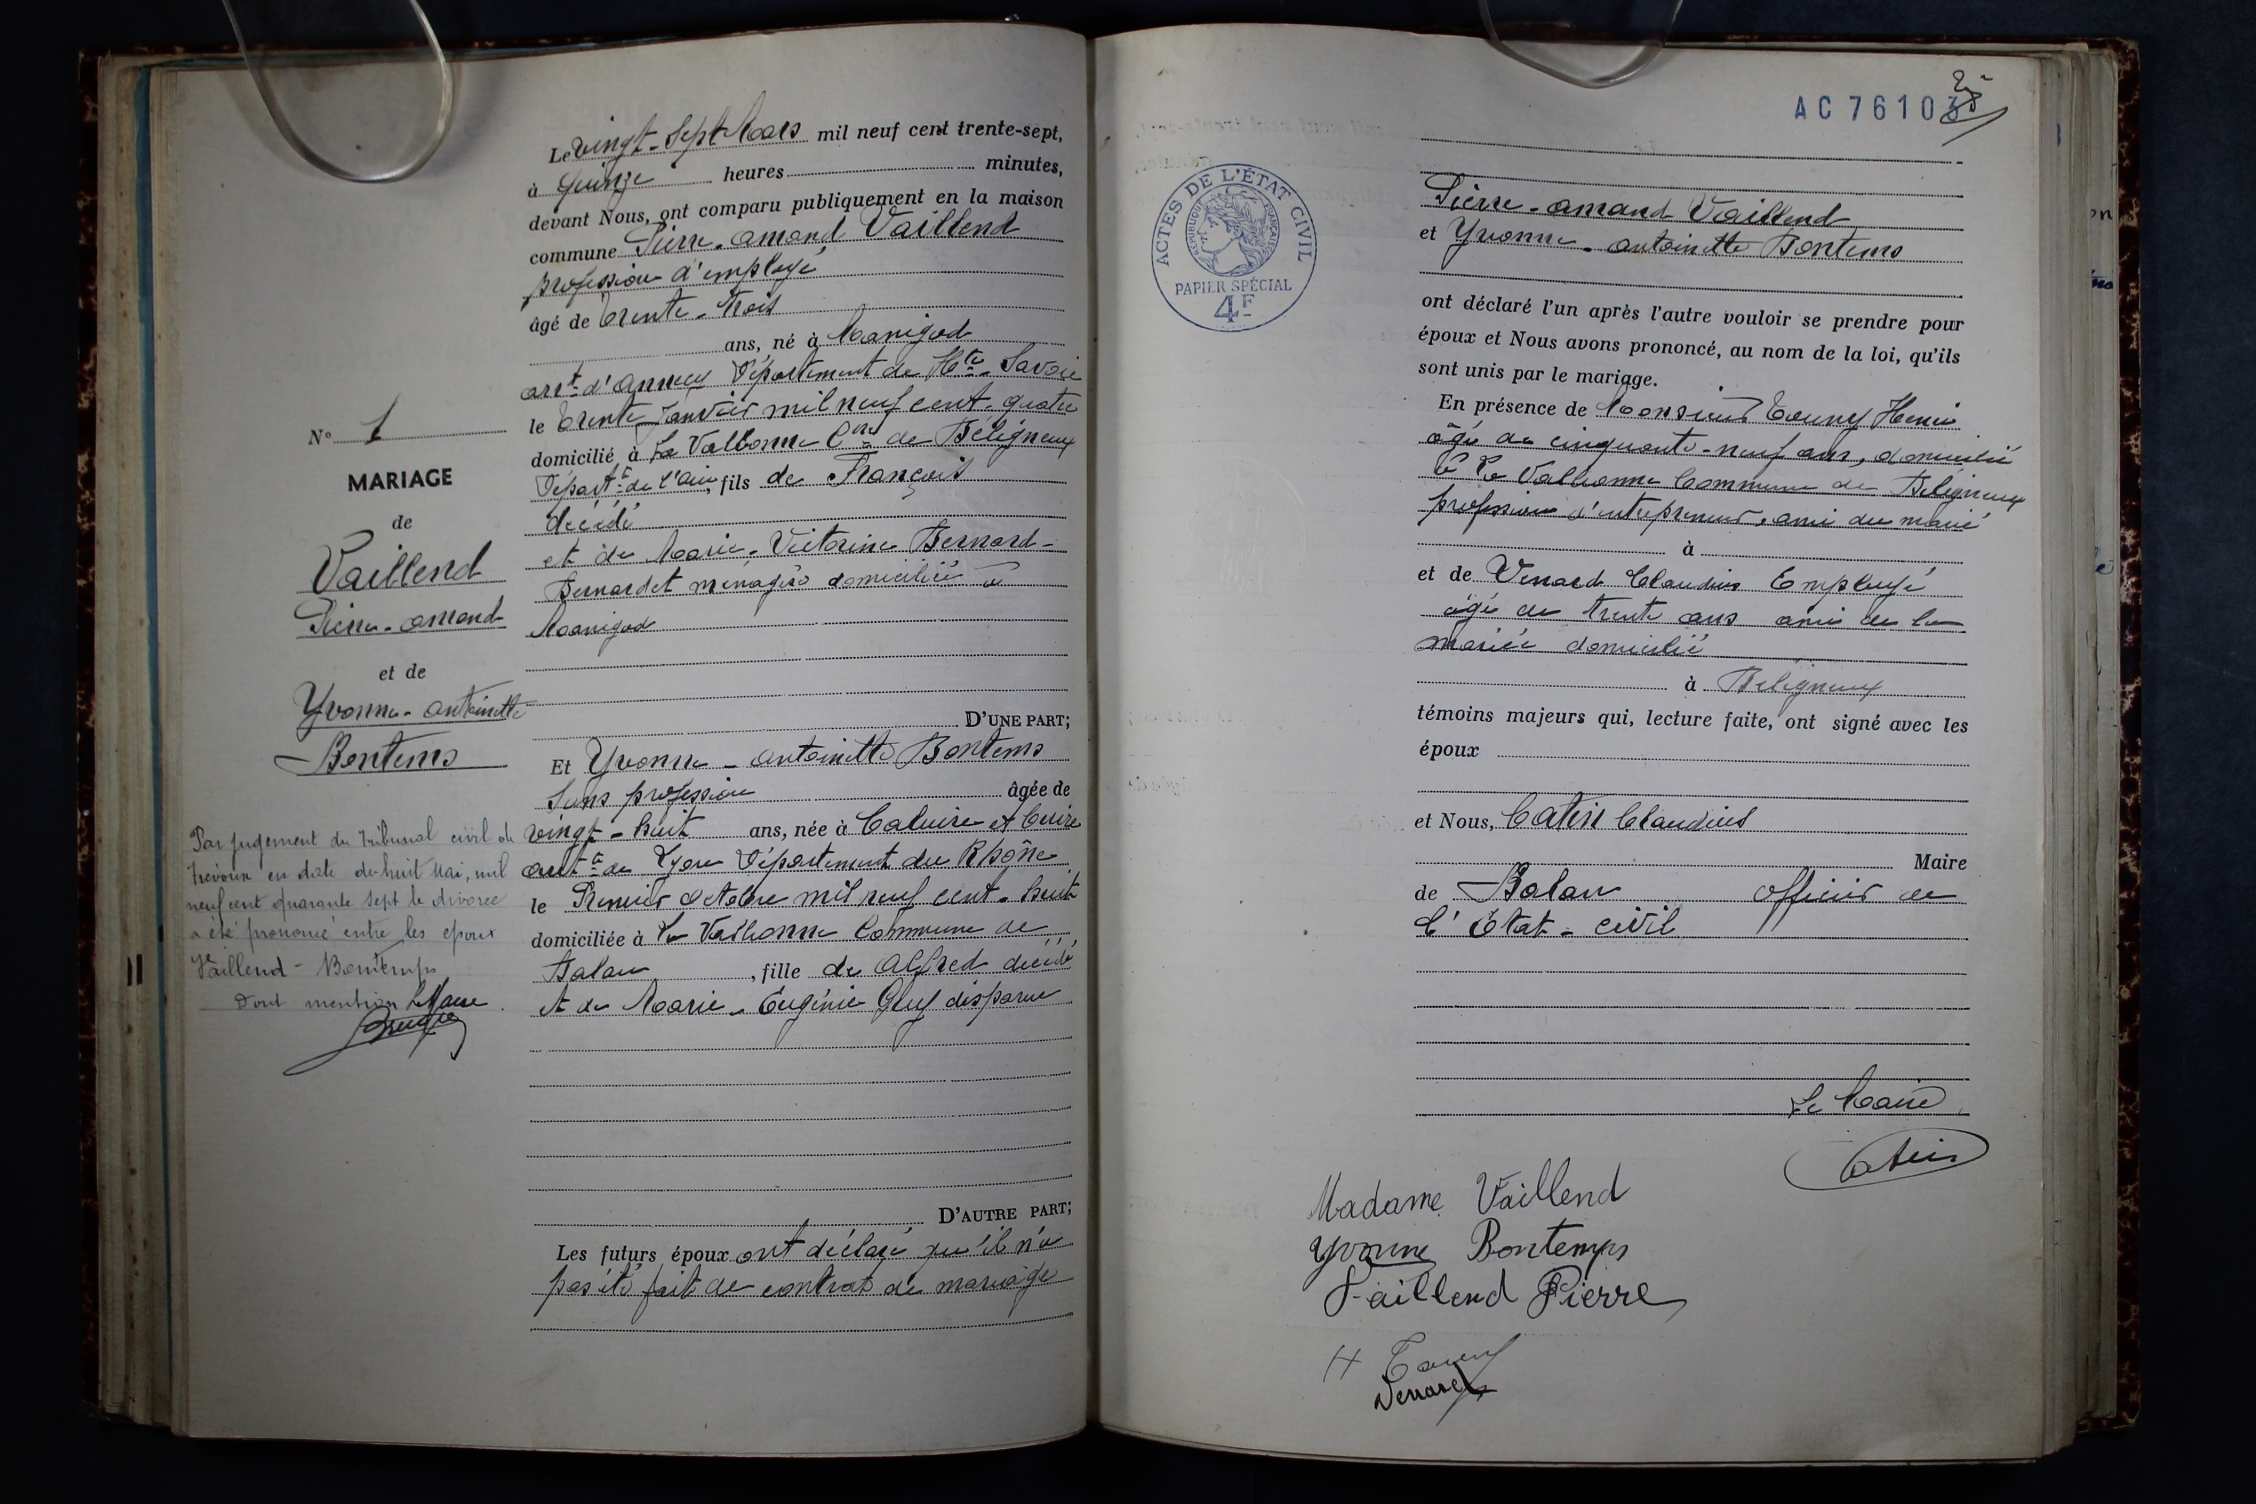 N° 1
MARIAGE
de
Vaillend
Pierre-amand
et de
Yvonne-antoinette
Bontems
Par jugement du tribunal civil de
Trévoux en date du huit Mai, mil
neuf cent quarante sept le divorce
a été prononcé entre les époux
Vaillend - Bontemps
Dont mention Le Maire
Le vingt-sept Mars mil neuf cent trente-sept,
à quinze heures minutes,
devant Nous, ont comparu publiquement en la maison
commune Pierre-amand Vaillend
profession d'employé
âgé de trente-trois
ans, né à Manigod
arrt d'annecy Département de Hte-Savoie
le trente Janvier mil neuf cent-quatre
domicilié à La Valbonne Cne de Béligneux
Départt de l'ain, fils de François
décédé
et de Marie-Victorine Bernard-
Bernardet ménagère domiciliée à
Manigod
D'UNE PART;
Et Yvonne-antoinette Bontems
Sans profession âgée de
vingt-huit ans, née à Caluire et Cuire
arrt de Lyon Département du Rhône
le Premier octobre mil neuf cent-huit
domiciliée à La Valbonne Commune de
Balan, fille de Alfred décédé
et de Marie-Eugénie Gluf disparue
D'AUTRE PART;
Les futurs époux ont déclaré qu'il n'a
pas été fait de contrat de mariage
AC 76103
25
ACTES DE L'ÉTAT CIVIL
RÉPUBLIQUE FRANÇAISE
PAPIER SPÉCIAL
4F
Pierre-amand Vaillend
et Yvonne-antoinette Bontems
ont déclaré l'un après l'autre vouloir se prendre pour
époux et Nous avons prononcé, au nom de la loi, qu'ils
sont unis par le mariage.
En présence de Monsieur Henri
âgé de cinquante-neuf ans, domicilié
à La Valbonne Commune de Béligneux
profession d'entrepreneur, ami du marié
à
et de Venard Claudius Employé
âgé de trente ans ami de la
mariée domicilié
à Béligneux
témoins majeurs qui, lecture faite, ont signé avec les
époux
et Nous, Catin Claudius
Maire
de Balan officier de
l'État-civil
Le Maire
Catin
Madame Vaillend
Yvonne Bontemps
Vaillend Pierre
H
Venard